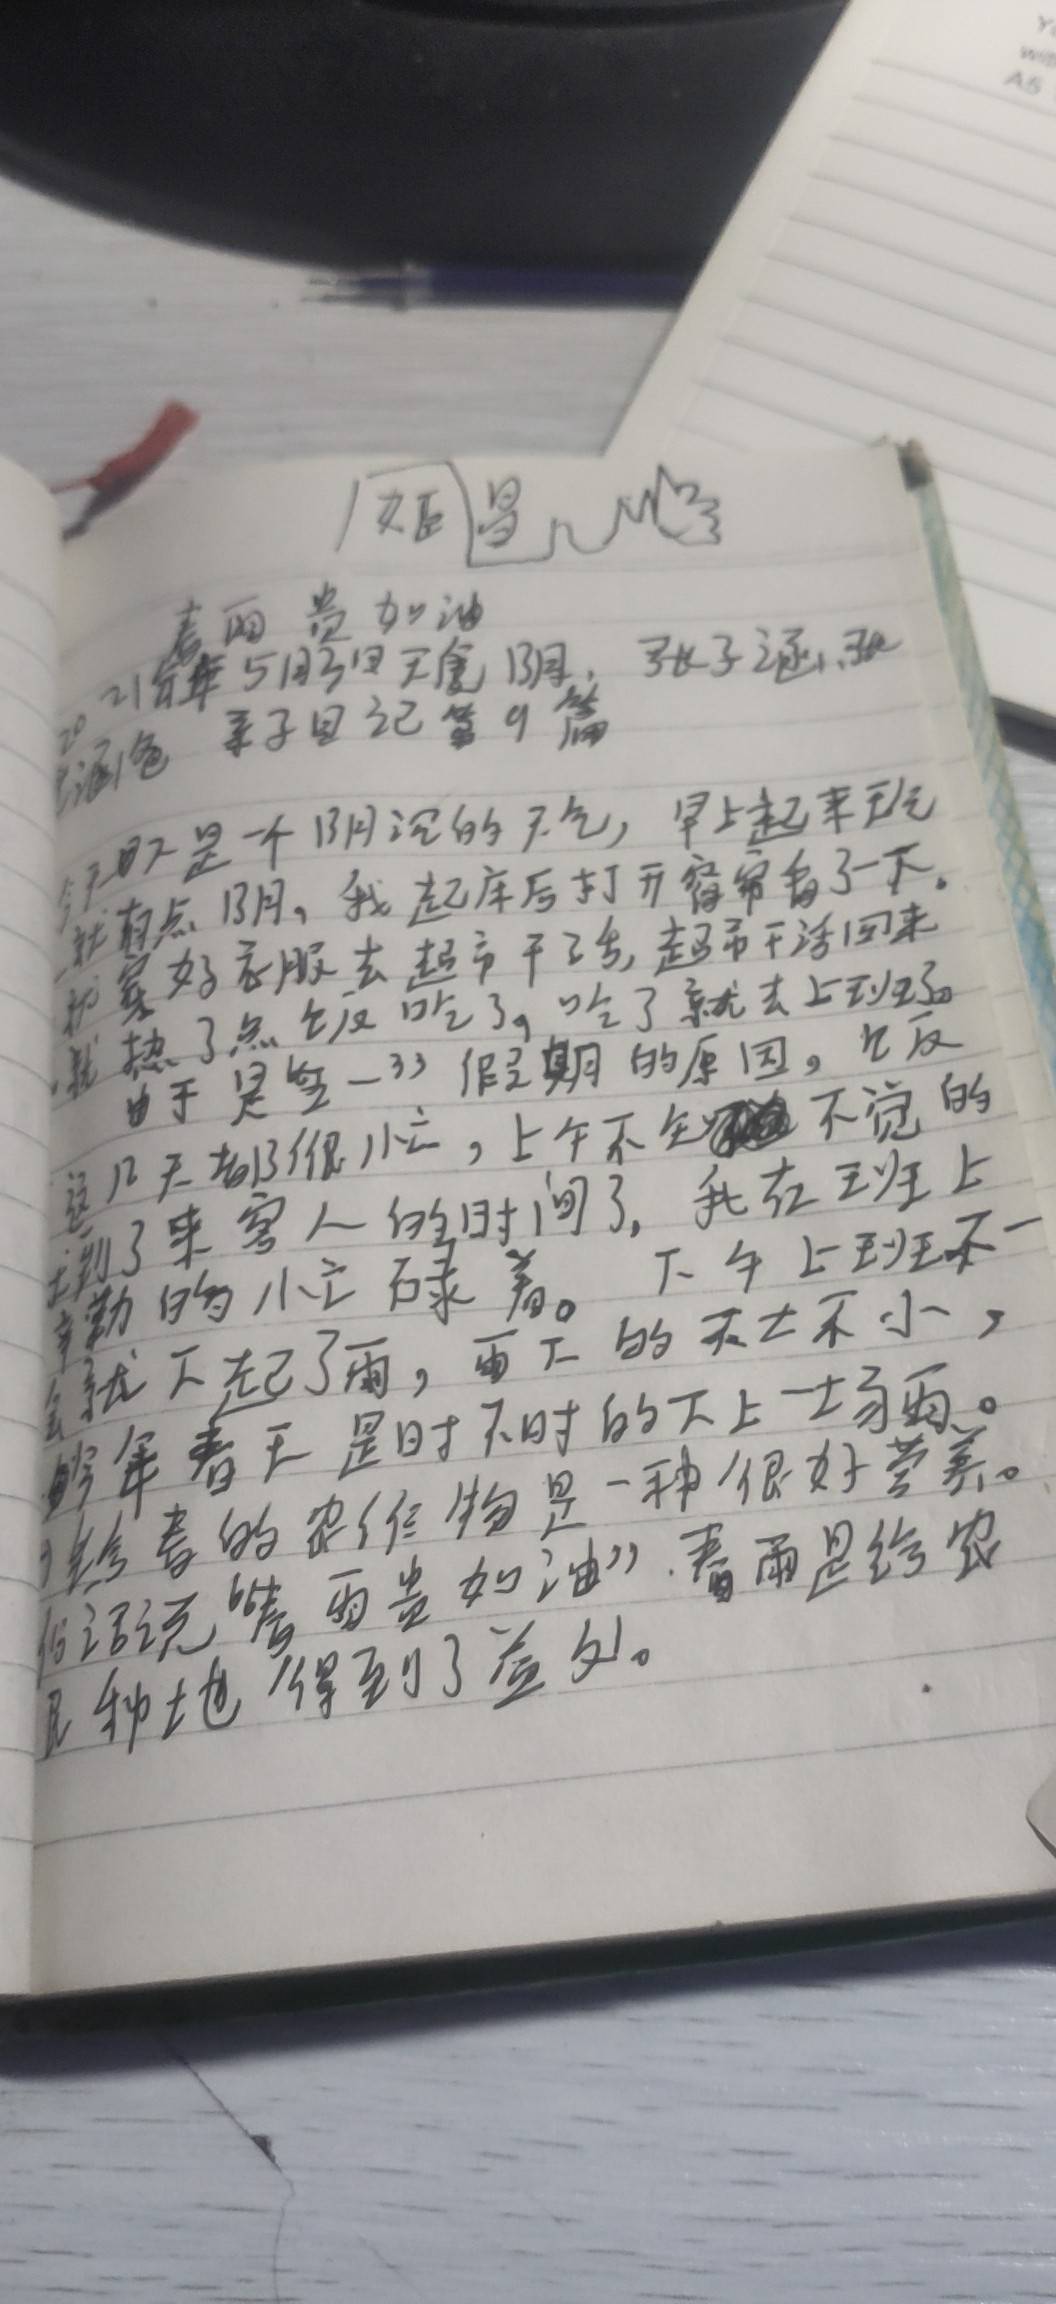 姬昌
春雨贵如油
2021年5月3日天气阴. 张子涵、张
子涵爸 亲子日记第9篇
今天是一个阴沉的天气, 早上起来天气
就有点阴, 我起床后打开窗帘看了一下。
就穿好衣服去超市干活, 超市干活回来
就热了点饭吃了, 吃了就去上班了。
由于是五一 假期的原因,
这几天都很忙, 上午不 不觉的
到了来客人的时间了, 我在班上
辛勤的忙碌着。 下午上班不一
会就下起了雨, 雨下的不大不小,
年春天是时不时的下上一场雨。
给春的农作物是一种很好营养。
俗话说“春雨贵如油”.春雨是给农
民种地得到了益处。
Yo
with
A5